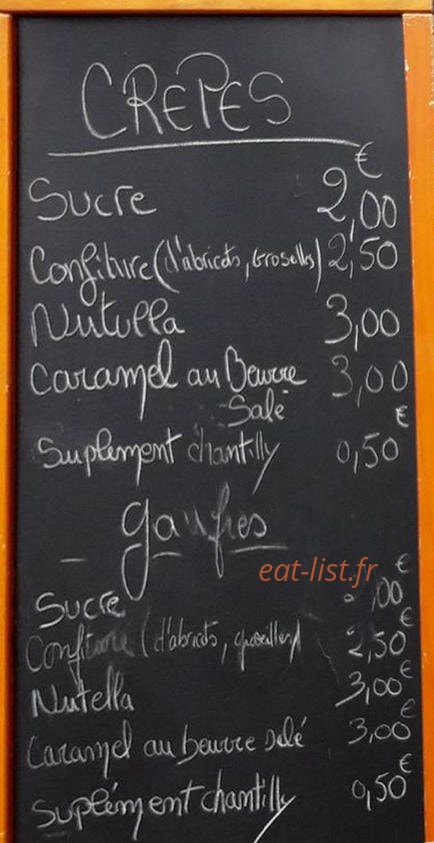 CREPES
€
Sucre 2,00
Confiture (d'abricots, Groseilles) 2,50
Nutella 3,00
Caramel au Beurre 3,00
Salé €
Suplement chantilly 0,50
gaufres
eat-list.fr
€
Sucre 2,00
€
Confiture (d'abricots, groseilles) 2,50
Nutella 3,00€
Caramel au beurre salé 3,00€
Suplément chantilly 0,50€